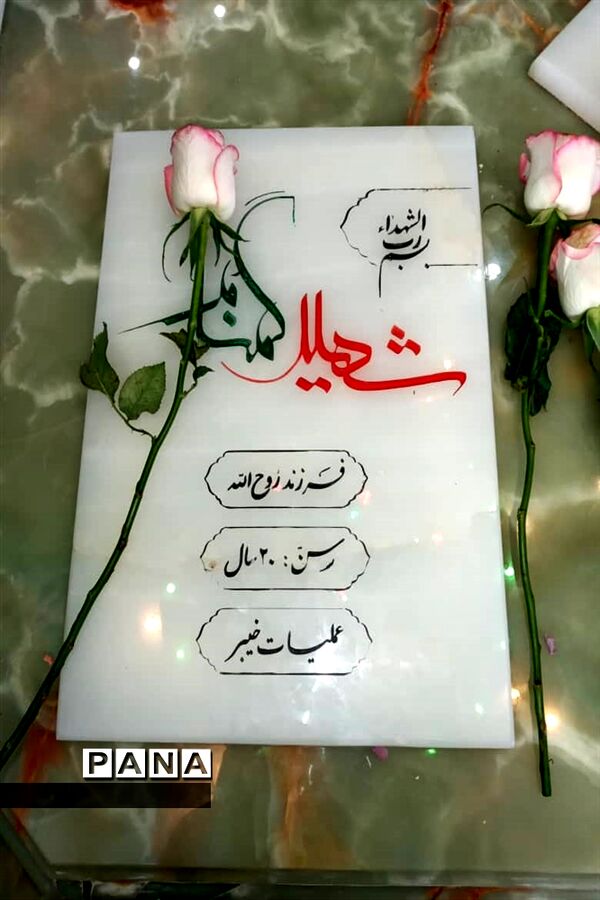 بسم رب الشهداء
شهید گمنام
فرزند روح الله
سن: ۲۰ سال
عملیات خیبر
PANA